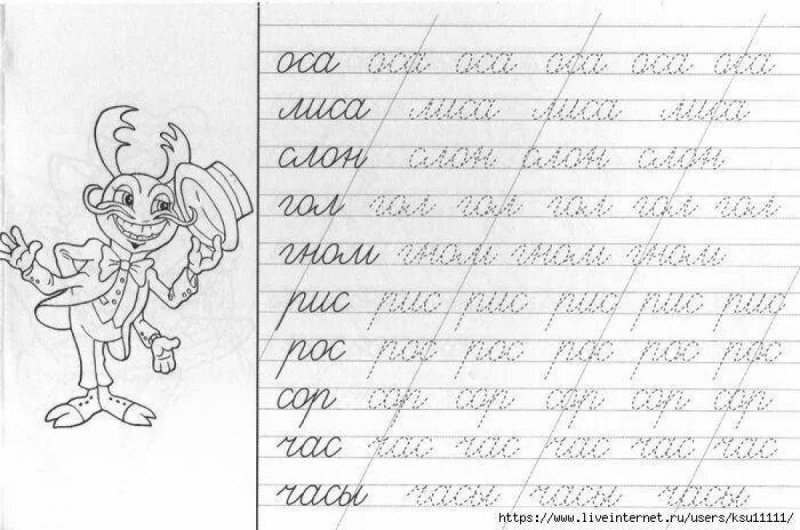 оса оса оса оса оса оса
лиса лиса лиса лиса
слон слон слон слон
гол гол гол гол гол гол
гном гном гном гном
рис рис рис рис рис рис
рос рос рос рос рос рос
сор сор сор сор сор сор
час час час час час час
часы часы часы часы
https://www.liveinternet.ru/users/ksu11111/